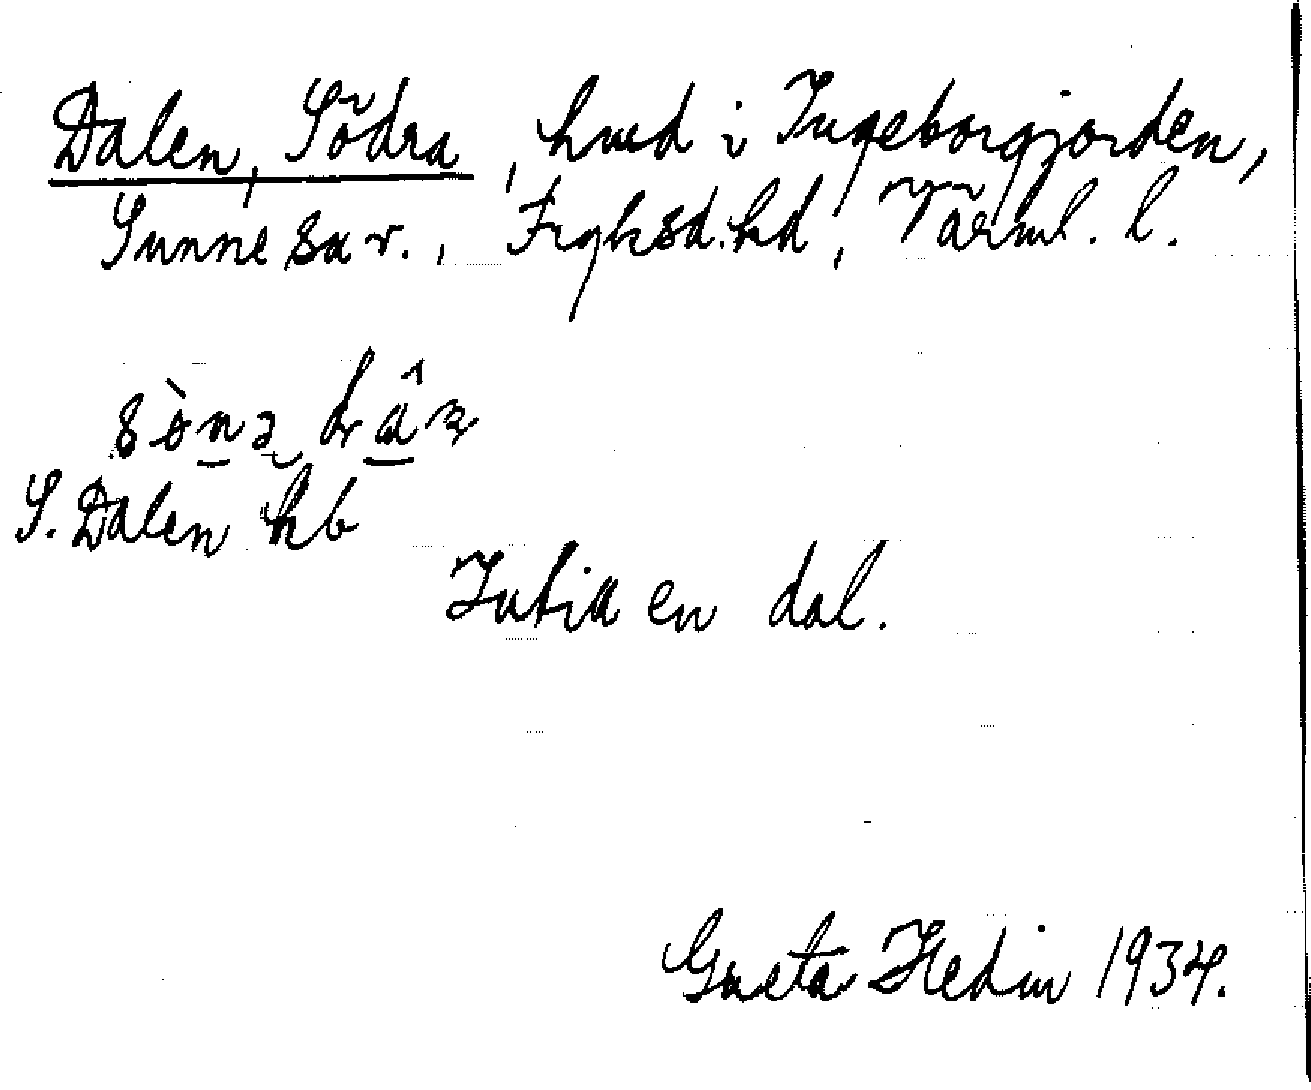 Dalen, Södra, hmd i Ingeborgjorden,
Sunne sn v., Fryksd. hd, Värml. l.
S. Dalen hb
Intill en dal.
Greta Hedin 1934.